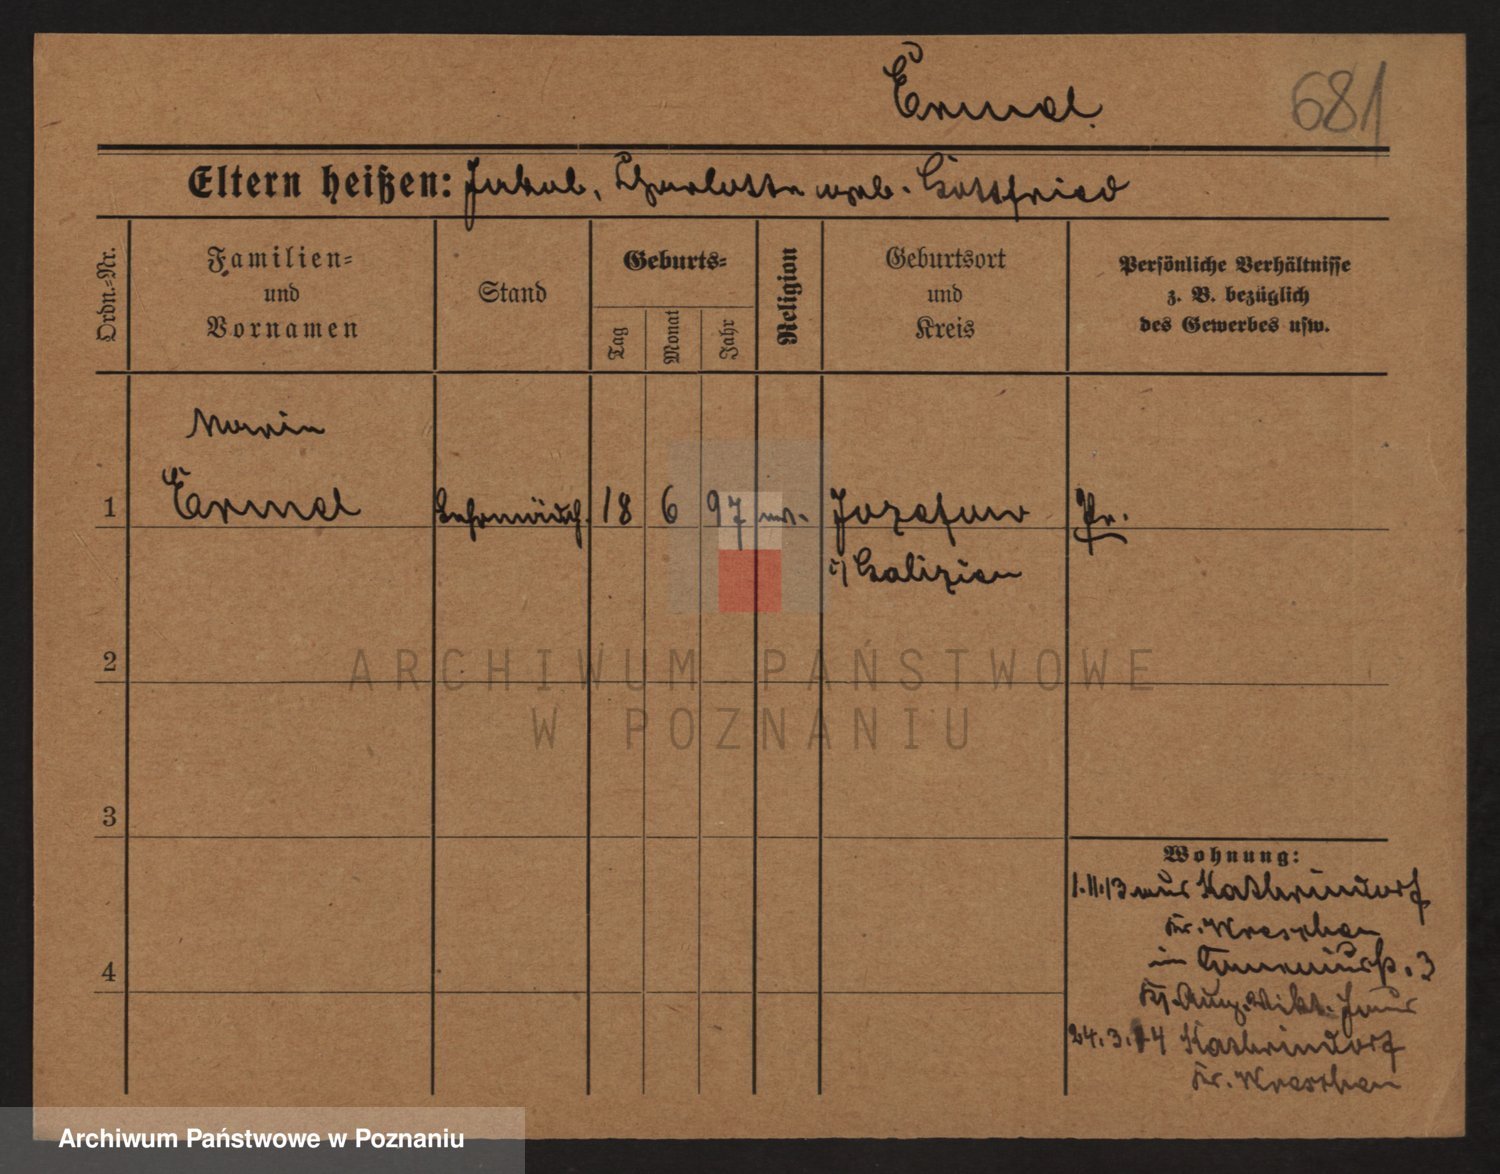 Ermel.
681
Eltern heißen: Jakob, Charlotte geb. Gottfried
Ordn.-Nr.
Familien-
und
Vornamen
Stand
Geburts-
Tag
Monat
Jahr
Religion
Geburtsort
und
Kreis
Persönliche Verhältnisse
z. B. bezüglich
des Gewerbes usw.
Maria
1 Ermel 18 6 97 ev. Jozefow Pr.
i/ Galizien
2
ARCHIWUM PAŃSTWOWE
W POZNANIU
3
Wohnung:
1.11.13 aus Kathrindorf
Kr. Wreschen
in 3
4
24.3.14 Kathrindorf
Kr. Wreschen
Archiwum Państwowe w Poznaniu